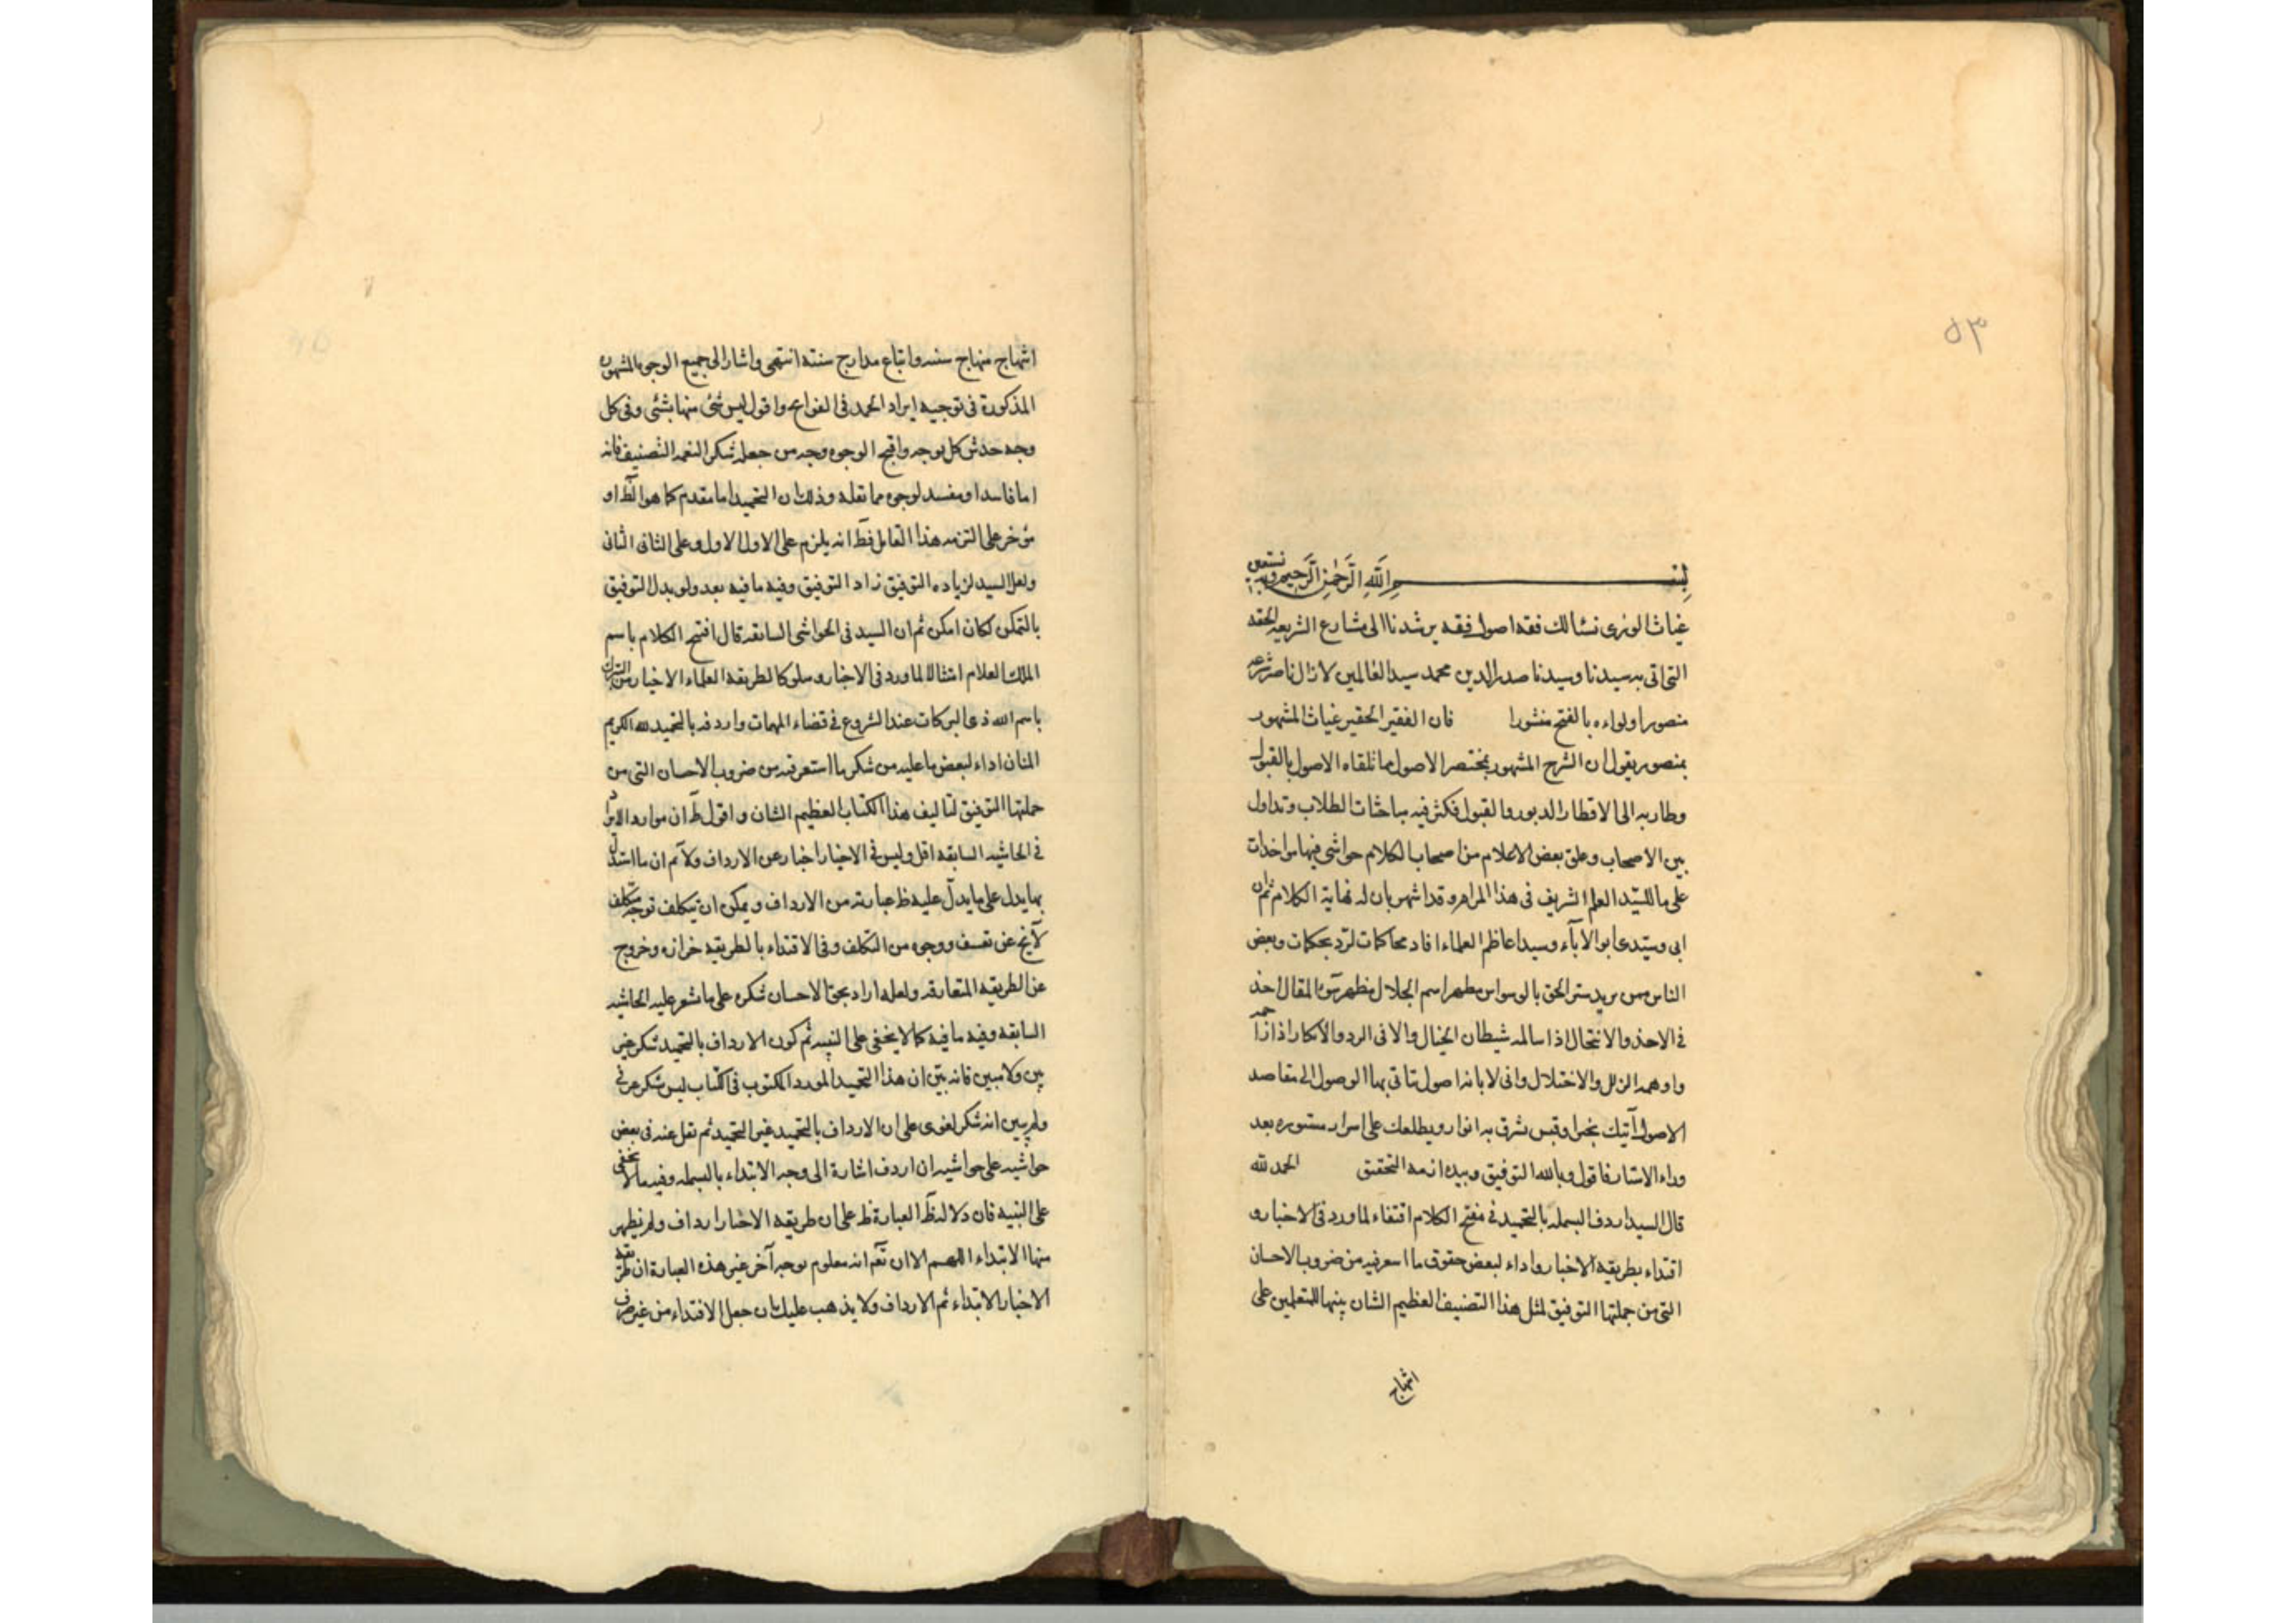 ٥٣
بسم الله الرحمن الرحيم وبه نستعين
غياث الورى نسئالك فقه اصول فقه يرشدنا الى مشارع الشريعه الحقه
التى اتى به سيدنا وسيدنا صدر الدين محمد سيد العالمين لازال ناصر شرعه
منصورا ولواءه بالفتح منشورا فان الفقير الحقير غياث المشهور
بمنصور يقول ان الشرح المشهور بمختصر الاصول مما تلقاه الاصول بالقبول
وطار به الى الاقطار الدبور والقبول فكثر فيه مباحثات الطلاب وتداول
بين الاصحاب وعلق بعض الاعلام من اصحاب الكلام حواشى فيها مواخذات
على ما للسيد العلم الشريف فى هذا المرام وقد اشتهر بان له نهاية الكلام ثم ان
ابى وسيدى ابو الآباء وسيد اعاظم العلماء افاد محاكمات لرد بحكمات وبعض
الناس ممن يريد ستر الحق بالوسواس مظهر اسم الجلال المقال اخذ
فى الاخذ والانتحال اذا سالمه شيطان الخيال والا فى الرد والانكار اذا
واوهمه الزلل والاختلال وانى لا بانه اصول تاتى بها الوصول الى مقاصد
الاصول آتيك بخبر او قبس شرق به انوار ويطلعك على اسرار مستوره بعد
وراء الاستار فاقول وبالله التوفيق وبيده ازمه التحقيق الحمد لله
قال السيد اردف البسمله بالتحميد فى مفتح الكلام اقتفاء لما ورد فى الاخبار و
اقتداء بطريقه الاخيار واداء لبعض حقوق ما استعرفه من ضروب الاحسان
التى من جملتها التوفيق لمثل هذا التصنيف العظيم الشان للمتعلمين على
انتهاج
انتهاج منهاج سننه واتباع مدارج سنته انتهى واشار الى جميع الوجوه المشهوره
المذكورة فى توجيه ايراد الحمد فى الفواتح واقول ليس شئ منها بشئى وفى كل
وجه خدش كل بوجه واقبح الوجوه وجه من جعله شكر النعمه التصنيف فانه
اما فاسد او مفسد لوجوه مما نقله وذلك ان التحميد اما مقدم كما هو الظ او
مؤخر على التزمه هذا القايل فظ انه يلزم على الاول الاول وعلى الثانى الثانى
ولعل السيد لزياده التوفيق زاد التوفيق وفيه ما فيه بعد ولو بدل التوفيق
بالتمكن لكان امكن ثم ان السيد فى الحواشى السابقه قال افتتح الكلام باسم
الملك العلام امتثالا لما ورد فى الاخبار وسلوكا لطريقه العلماء الاخيار من التبرك
باسم الله ذى البركات عند الشروع فى قضاء المهمات واردفه بالتحميد لله الكريم
المنان اداء لبعض ما عليه من شكر ما استعرفه من ضروب الاحسان التى من
جملتها التوفيق لتاليف هذا الكتاب العظيم الشان واقول ظ ان موارد الايراد
فى الحاشيه السابقه اقل وليس فى الاخبار اخبار عن الارداف ولانم ان ما استدل
بما يدل على ما يدل عليه ظ عبارته من الارداف ويمكن ان يتكلف توجيه متكلف
لا يخ عن تعسف ووجوه من التكلف وفى الاقتداء بالطريقه خزازه وخروج
عن الطريقه المتعارفه ولعله اراد بحق الاحسان شكره على ما شعر عليه الحاشيه
السابقه وفيه ما فيه كما لا يخفى على النبيه ثم كون الارداف بالتحميد شكر غير
بين ولا مبين فانه بين ان هذا التحميد المورد المكتوب فى الكتاب ليس شكر عرفى
ولم يبين انه شكر لغوى على ان الارداف بالتحميد غير التحميد ثم نقل عنه فى بعض
حواشيه على حواشيه ان اردف اشارة الى وجه الابتداء بالبسمله وفيه ما لا يخفى
على النبيه فان دلاله ظ العبارة ظ على ان طريقه الاخيار ارداف ولم يظهر
منها الابتداء اللهم الا ان نقم انه معلوم بوجه آخر غير هذه العبارة ان طريقه
الاخيار الابتداء ثم الارداف ولا يذهب عليك ان جعل الاقتداء من غير